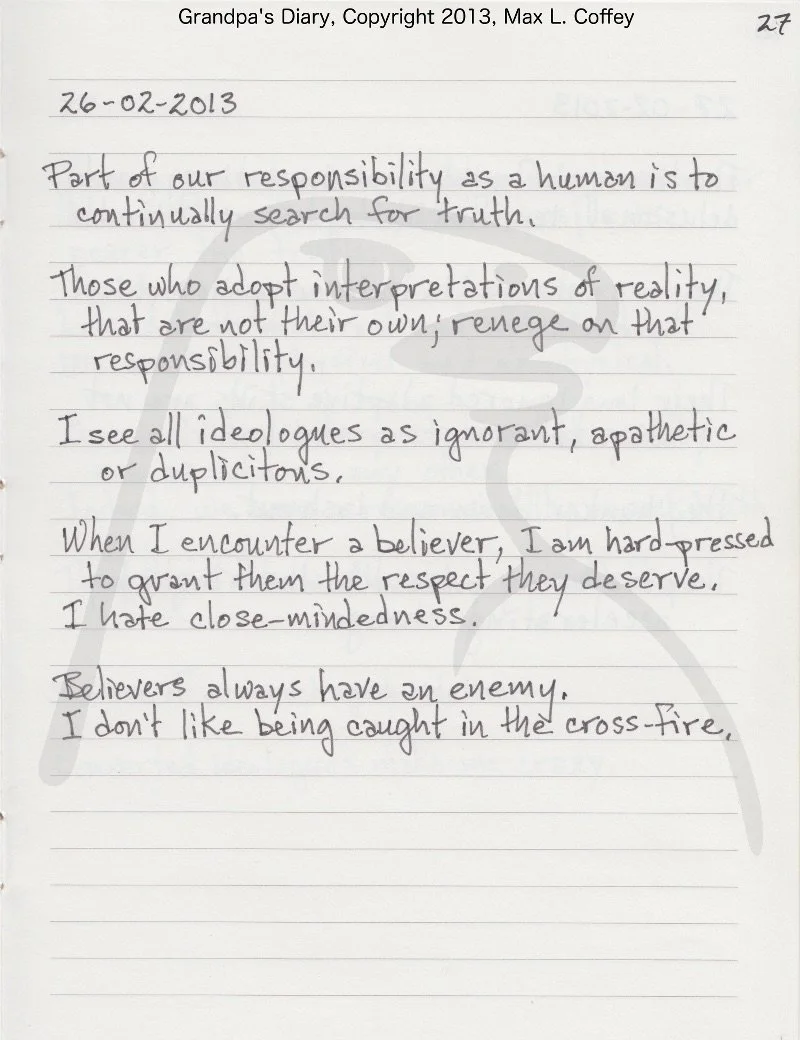 Grandpa's Diary, Copyright 2013, Max L. Coffey
27
26-02-2013
Part of our responsibility as a human is to
continually search for truth.
Those who adopt interpretations of reality,
that are not their own; renege on that
responsibility.
I see all ideologues as ignorant, apathetic
or duplicitous.
When I encounter a believer, I am hard-pressed
to grant them the respect they deserve.
I hate close-mindedness.
Believers always have an enemy.
I don't like being caught in the cross-fire.